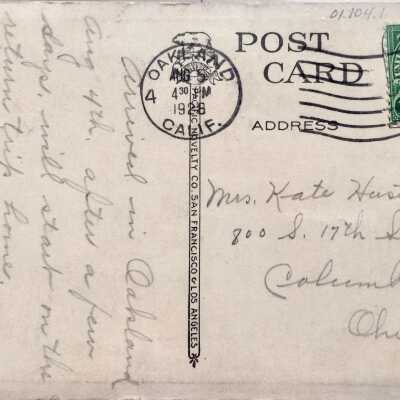 01.104.1
POST
CARD
OAKLAND
AUG 5
4 30 PM
1926
CALIF.
4
ADDRESS
PACIFIC NOVELTY CO. SAN FRANCISCO & LOS ANGELES
Arrived in Oakland
Aug 4th. after a few
days, will start on the
return trip home.
Mrs. Kate Hus
800 S. 17th S
Columb
Ohi